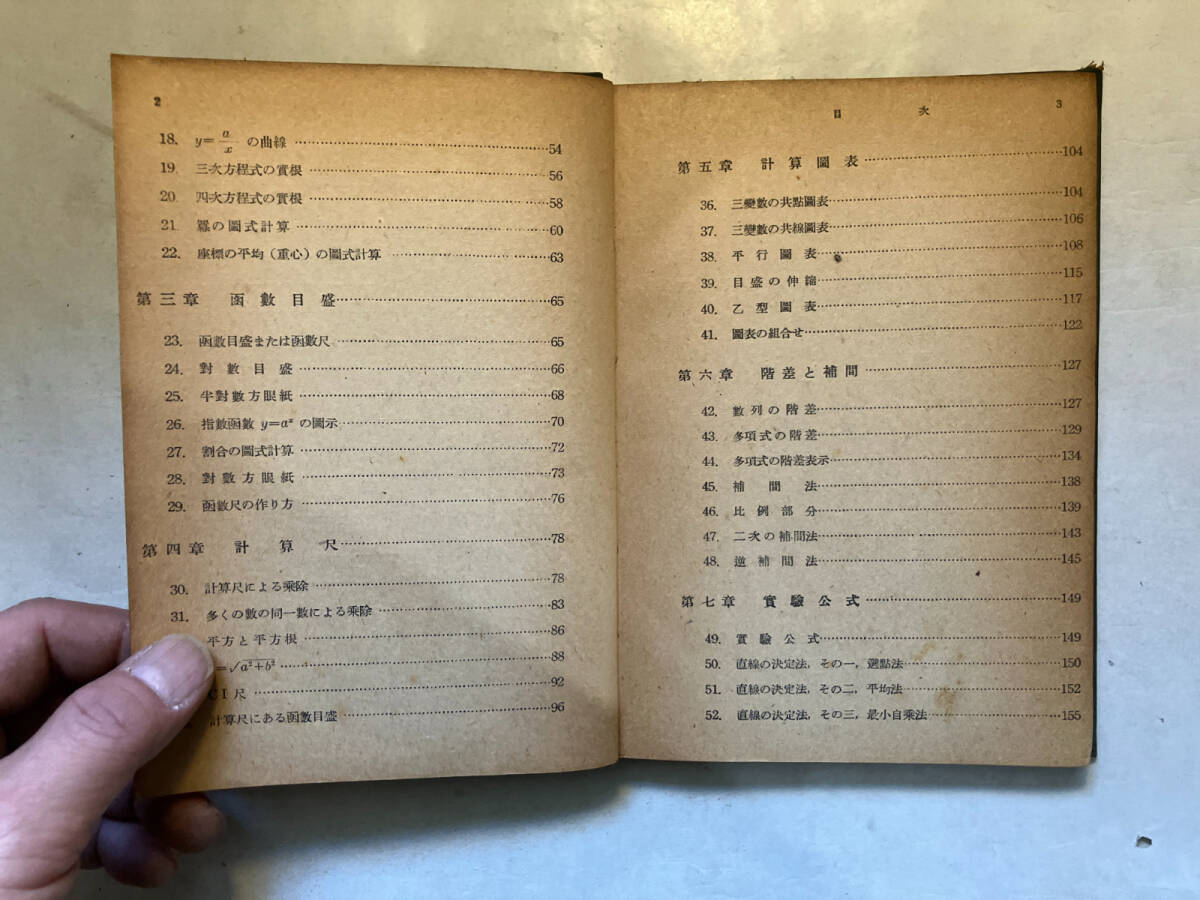 2
18. y=a/x の曲線 54
19. 三次方程式の實根 56
20. 四次方程式の實根 58
21. の圖式計算 60
22. 座標の平均(重心)の圖式計算 63
第三章 函數目盛 65
23. 函數目盛または函數尺 65
24. 對數目盛 66
25. 半對數方眼紙 68
26. 指數函數 y=aˣ の圖示 70
27. 割合の圖式計算 72
28. 對數方眼紙 73
29. 函數尺の作り方 76
第四章 計算尺 78
30. 計算尺による乘除 78
31. 多くの數の同一數による乘除 83
平方と平方根 86
=√a²+b² 88
CI尺 92
計算尺にある函數目盛 96
目次 3
第五章 計算圖表 104
36. 三變數の共點圖表 104
37. 三變數の共線圖表 106
38. 平行圖表 108
39. 目盛の伸縮 115
40. 乙型圖表 117
41. 圖表の組合せ 122
第六章 階差と補間 127
42. 數列の階差 127
43. 多項式の階差 129
44. 多項式の階差表示 134
45. 補間法 138
46. 比例部分 139
47. 二次の補間法 143
48. 逆補間法 145
第七章 實驗公式 149
49. 實驗公式 149
50. 直線の決定法,その一,選點法 150
51. 直線の決定法,その二,平均法 152
52. 直線の決定法,その三,最小自乘法 155